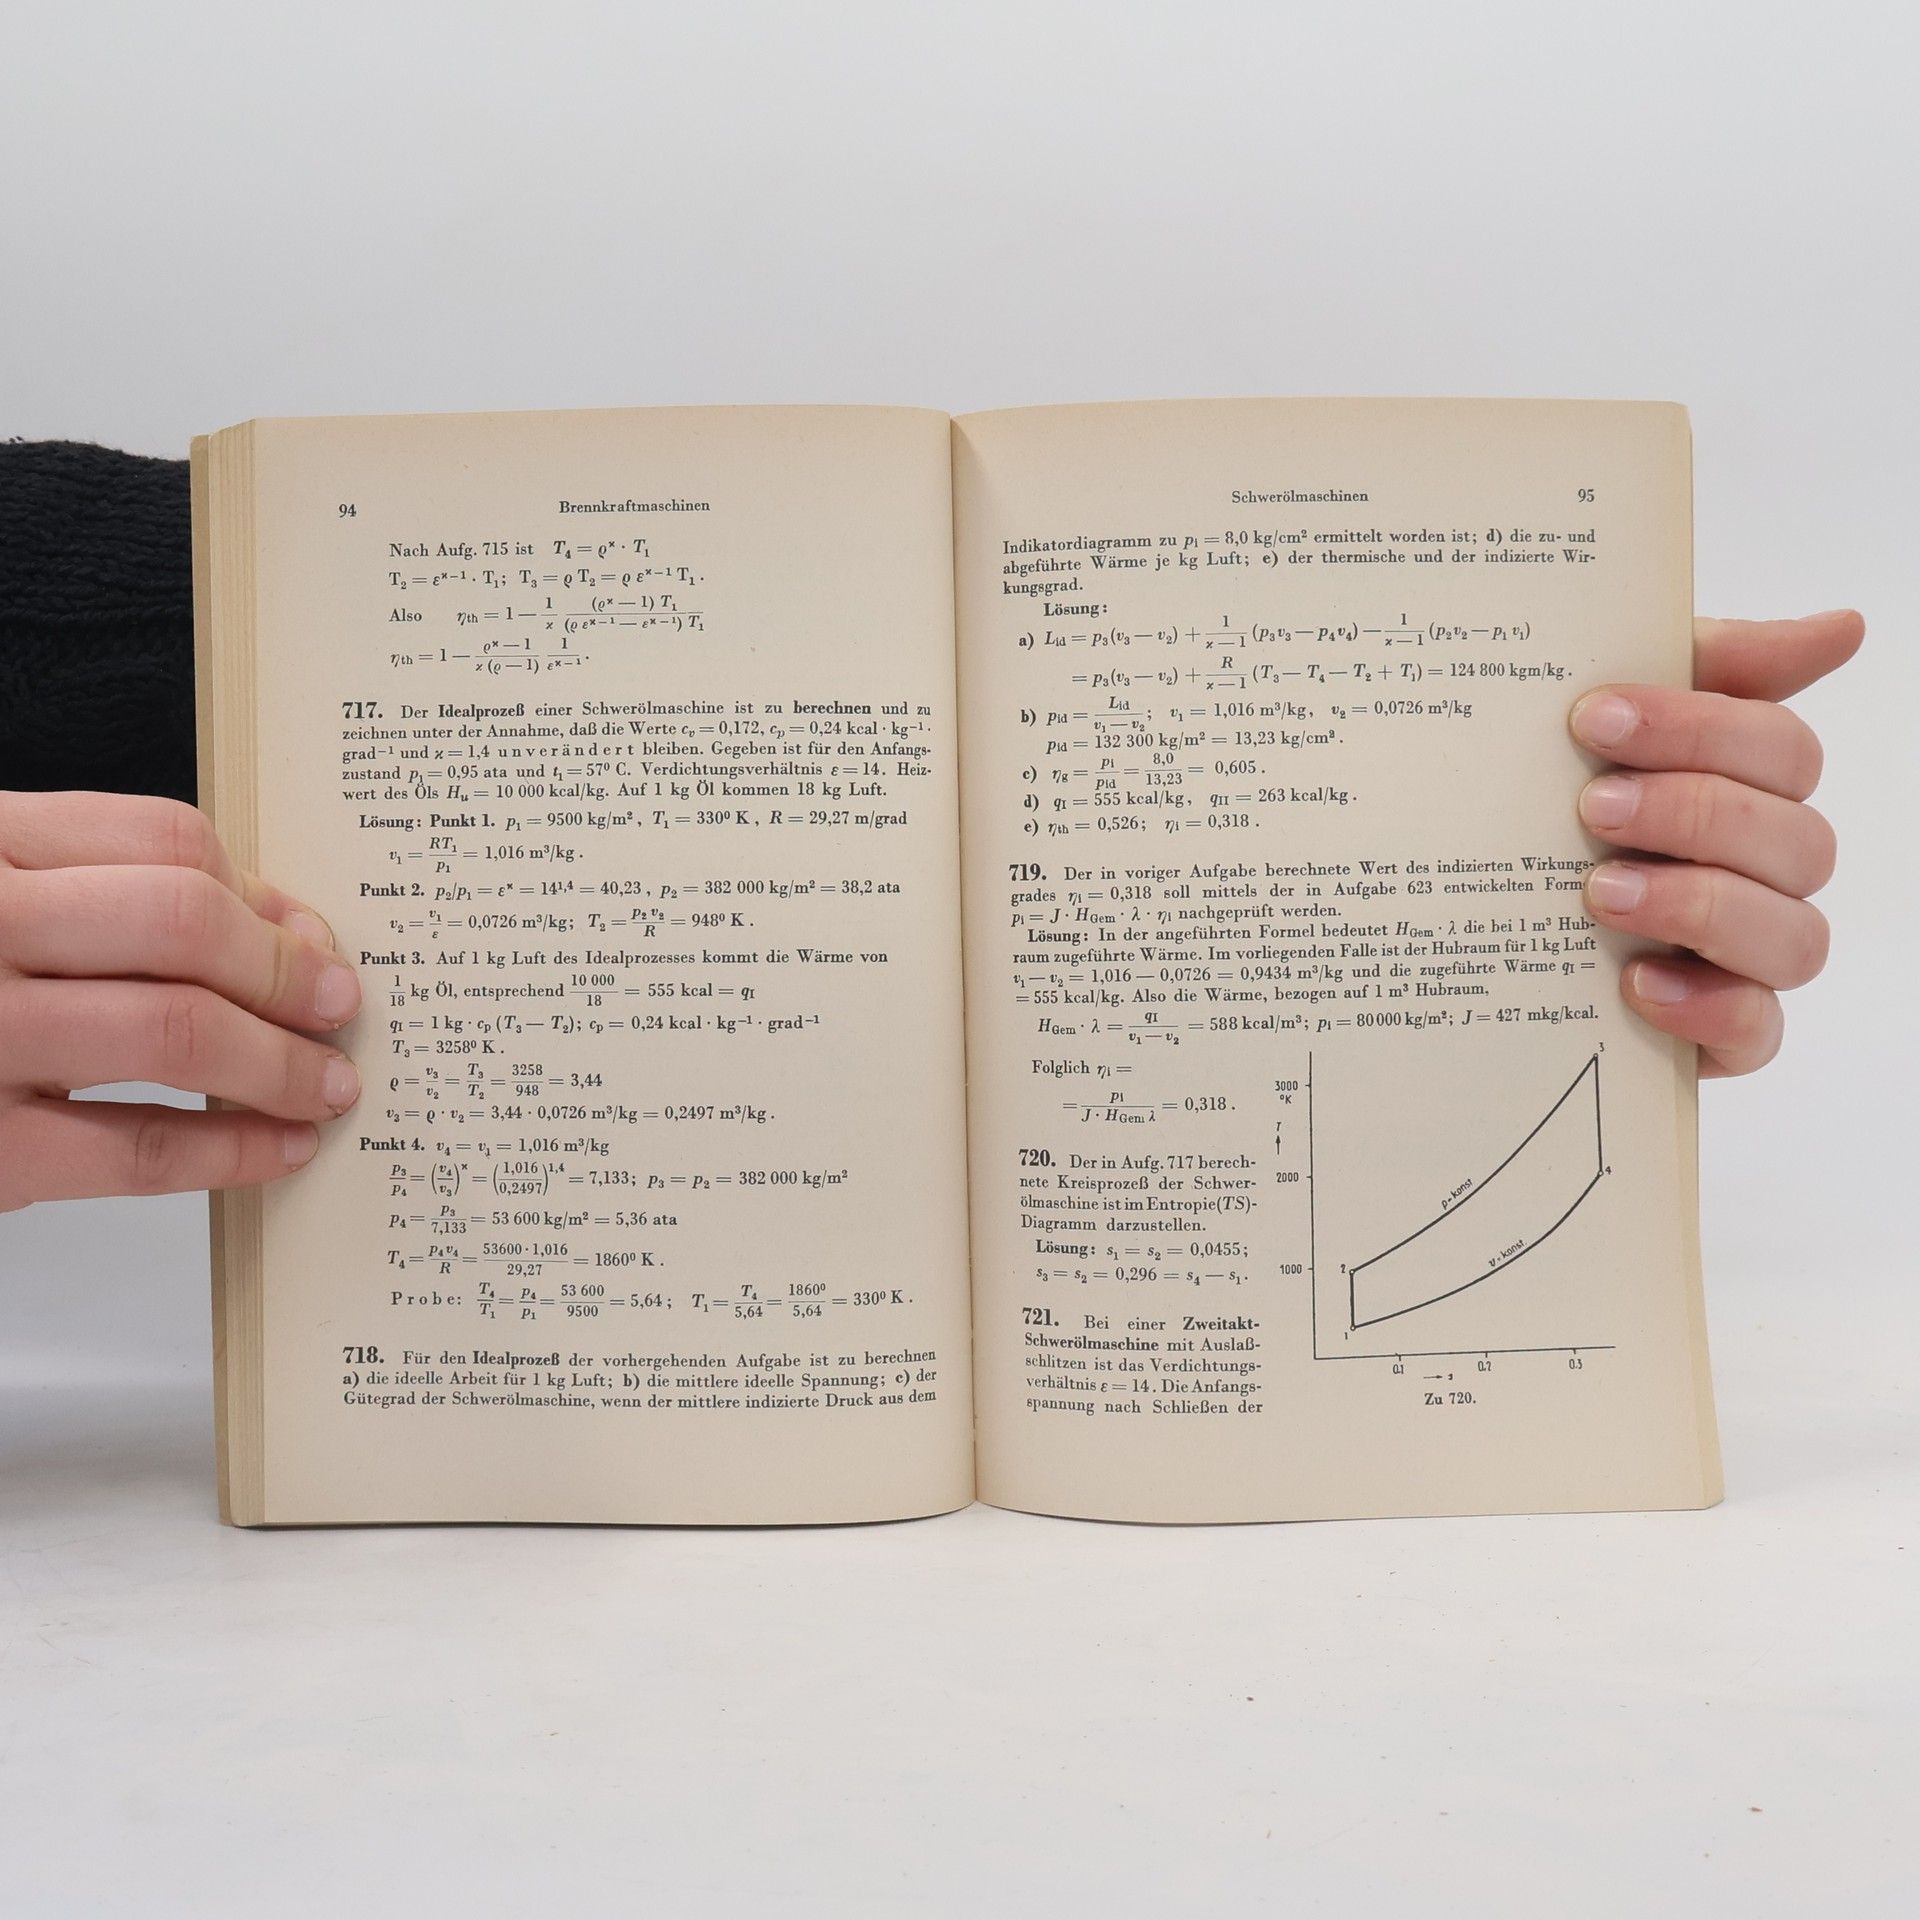 94 Brennkraftmaschinen
Nach Aufg. 715 ist T₄ = ϱ^ϰ · T₁
T₂ = ε^(ϰ−1) · T₁; T₃ = ϱ T₂ = ϱ ε^(ϰ−1) T₁ .
Also η_th = 1 − 1/ϰ (ϱ^ϰ − 1) T₁ / (ϱ ε^(ϰ−1) − ε^(ϰ−1)) T₁
η_th = 1 − (ϱ^ϰ − 1)/(ϰ (ϱ − 1)) 1/ε^(ϰ−1) .
717. Der Idealprozeß einer Schwerölmaschine ist zu berechnen und zu
zeichnen unter der Annahme, daß die Werte c_v = 0,172, c_p = 0,24 kcal · kg⁻¹ ·
grad⁻¹ und ϰ = 1,4 unverändert bleiben. Gegeben ist für den Anfangs-
zustand p₁ = 0,95 ata und t₁ = 57⁰ C. Verdichtungsverhältnis ε = 14. Heiz-
wert des Öls H_u = 10 000 kcal/kg. Auf 1 kg Öl kommen 18 kg Luft.
Lösung: Punkt 1. p₁ = 9500 kg/m², T₁ = 330⁰ K, R = 29,27 m/grad
v₁ = RT₁/p₁ = 1,016 m³/kg .
Punkt 2. p₂/p₁ = ε^ϰ = 14^1,4 = 40,23 , p₂ = 382 000 kg/m² = 38,2 ata
v₂ = v₁/ε = 0,0726 m³/kg; T₂ = p₂ v₂/R = 948⁰ K .
Punkt 3. Auf 1 kg Luft des Idealprozesses kommt die Wärme von
1/18 kg Öl, entsprechend 10 000/18 = 555 kcal = q_I
q_I = 1 kg · c_p (T₃ − T₂); c_p = 0,24 kcal · kg⁻¹ · grad⁻¹
T₃ = 3258⁰ K .
ϱ = v₃/v₂ = T₃/T₂ = 3258/948 = 3,44
v₃ = ϱ · v₂ = 3,44 · 0,0726 m³/kg = 0,2497 m³/kg .
Punkt 4. v₄ = v₁ = 1,016 m³/kg
p₃/p₄ = (v₄/v₃)^ϰ = (1,016/0,2497)^1,4 = 7,133; p₃ = p₂ = 382 000 kg/m²
p₄ = p₃/7,133 = 53 600 kg/m² = 5,36 ata
T₄ = p₄v₄/R = 53600 · 1,016/29,27 = 1860⁰ K .
Probe: T₄/T₁ = p₄/p₁ = 53 600/9500 = 5,64 ; T₁ = T₄/5,64 = 1860⁰/5,64 = 330⁰ K .
718. Für den Idealprozeß der vorhergehenden Aufgabe ist zu berechnen
a) die ideelle Arbeit für 1 kg Luft; b) die mittlere ideelle Spannung; c) der
Gütegrad der Schwerölmaschine, wenn der mittlere indizierte Druck aus dem
Schwerölmaschinen 95
Indikatordiagramm zu p_i = 8,0 kg/cm² ermittelt worden ist; d) die zu- und
abgeführte Wärme je kg Luft; e) der thermische und der indizierte Wir-
kungsgrad.
Lösung:
a) L_id = p₃(v₃ − v₂) + 1/(ϰ − 1) (p₃v₃ − p₄v₄) − 1/(ϰ − 1) (p₂v₂ − p₁v₁)
= p₃(v₃ − v₂) + R/(ϰ − 1) (T₃ − T₄ − T₂ + T₁) = 124 800 kgm/kg .
b) p_id = L_id/(v₁ − v₂) ; v₁ = 1,016 m³/kg, v₂ = 0,0726 m³/kg
p_id = 132 300 kg/m² = 13,23 kg/cm² .
c) η_g = p_i/p_id = 8,0/13,23 = 0,605 .
d) q_I = 555 kcal/kg, q_II = 263 kcal/kg .
e) η_th = 0,526; η_i = 0,318 .
719. Der in voriger Aufgabe berechnete Wert des indizierten Wirkungs-
grades η_i = 0,318 soll mittels der in Aufgabe 623 entwickelten
p_i = J · H_Gem · λ · η_i nachgeprüft werden.
Lösung: In der angeführten Formel bedeutet H_Gem · λ die bei 1 m³ Hub-
raum zugeführte Wärme. Im vorliegenden Falle ist der Hubraum für 1 kg Luft
v₁ − v₂ = 1,016 − 0,0726 = 0,9434 m³/kg und die zugeführte Wärme q_I =
= 555 kcal/kg. Also die Wärme, bezogen auf 1 m³ Hubraum,
H_Gem · λ = q_I/(v₁ − v₂) = 588 kcal/m³; p_i = 80000 kg/m²; J = 427 mkg/kcal.
Folglich η_i =
= p_i/(J · H_Gem λ) = 0,318 .
720. Der in Aufg. 717 berech-
nete Kreisprozeß der Schwer-
ölmaschine ist im Entropie(TS)-
Diagramm darzustellen.
Lösung: s₁ = s₂ = 0,0455;
s₃ = s₂ = 0,296 = s₄ − s₁.
721. Bei einer Zweitakt-
Schwerölmaschine mit Auslaß-
schlitzen ist das Verdichtungs-
verhältnis ε = 14. Die Anfangs-
spannung nach Schließen der
3000
°K
T
2000
1000
3
4
2
1
p=konst
v=konst
0.1 0.2 0.3
s
Zu 720.